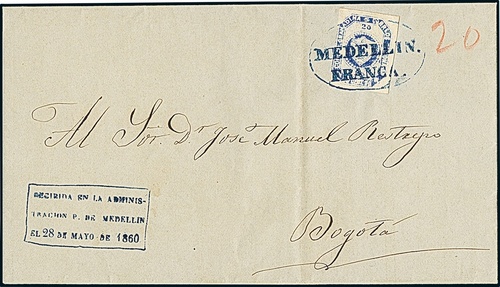 20
MEDELLIN.
FRANCA.
20
Al Sor. Dr. José Manuel Restrepo
RECIBIDA EN LA ADMINIS-
TRACION P. DE MEDELLIN
EL 28 DE MAYO DE 1860
Bogotá